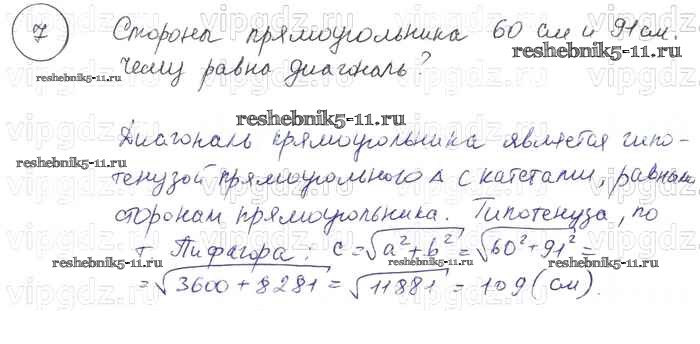 7 Стороны прямоугольника 60 см и 91 см.
Чему равна диагональ?
reshebnik5-11.ru
reshebnik5-11.ru
reshebnik5-11.ru
Диагональ прямоугольника является гипо-
reshebnik5-11.ru
тенузой прямоугольного Δ с катетами, равными
сторонам прямоугольника. Гипотенуза, по
т. Пифагора: c = √a² + b² = √60² + 91² =
reshebnik5-11.ru
reshebnik5-11.ru
reshebnik5-11.ru
= √3600 + 8281 = √11881 = 109 (см).